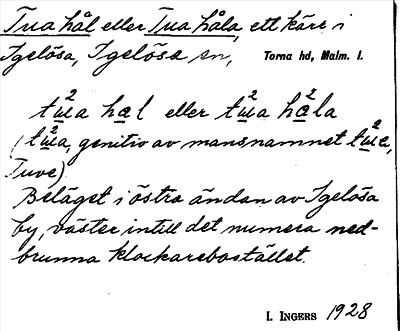 Tua hål eller Tua håla, ett kärr i
Igelösa, Igelösa sn, Torna hd, Malm. l.
tɯ²a hal eller tɯ²a hå²la
(tɯ²a, genitiv av mansnamnet tɯ²a,
Tuve).
Beläget i östra ändan av Igelösa
by, väster intill det numera ned-
brunna klockarebostället.
I. INGERS 1928